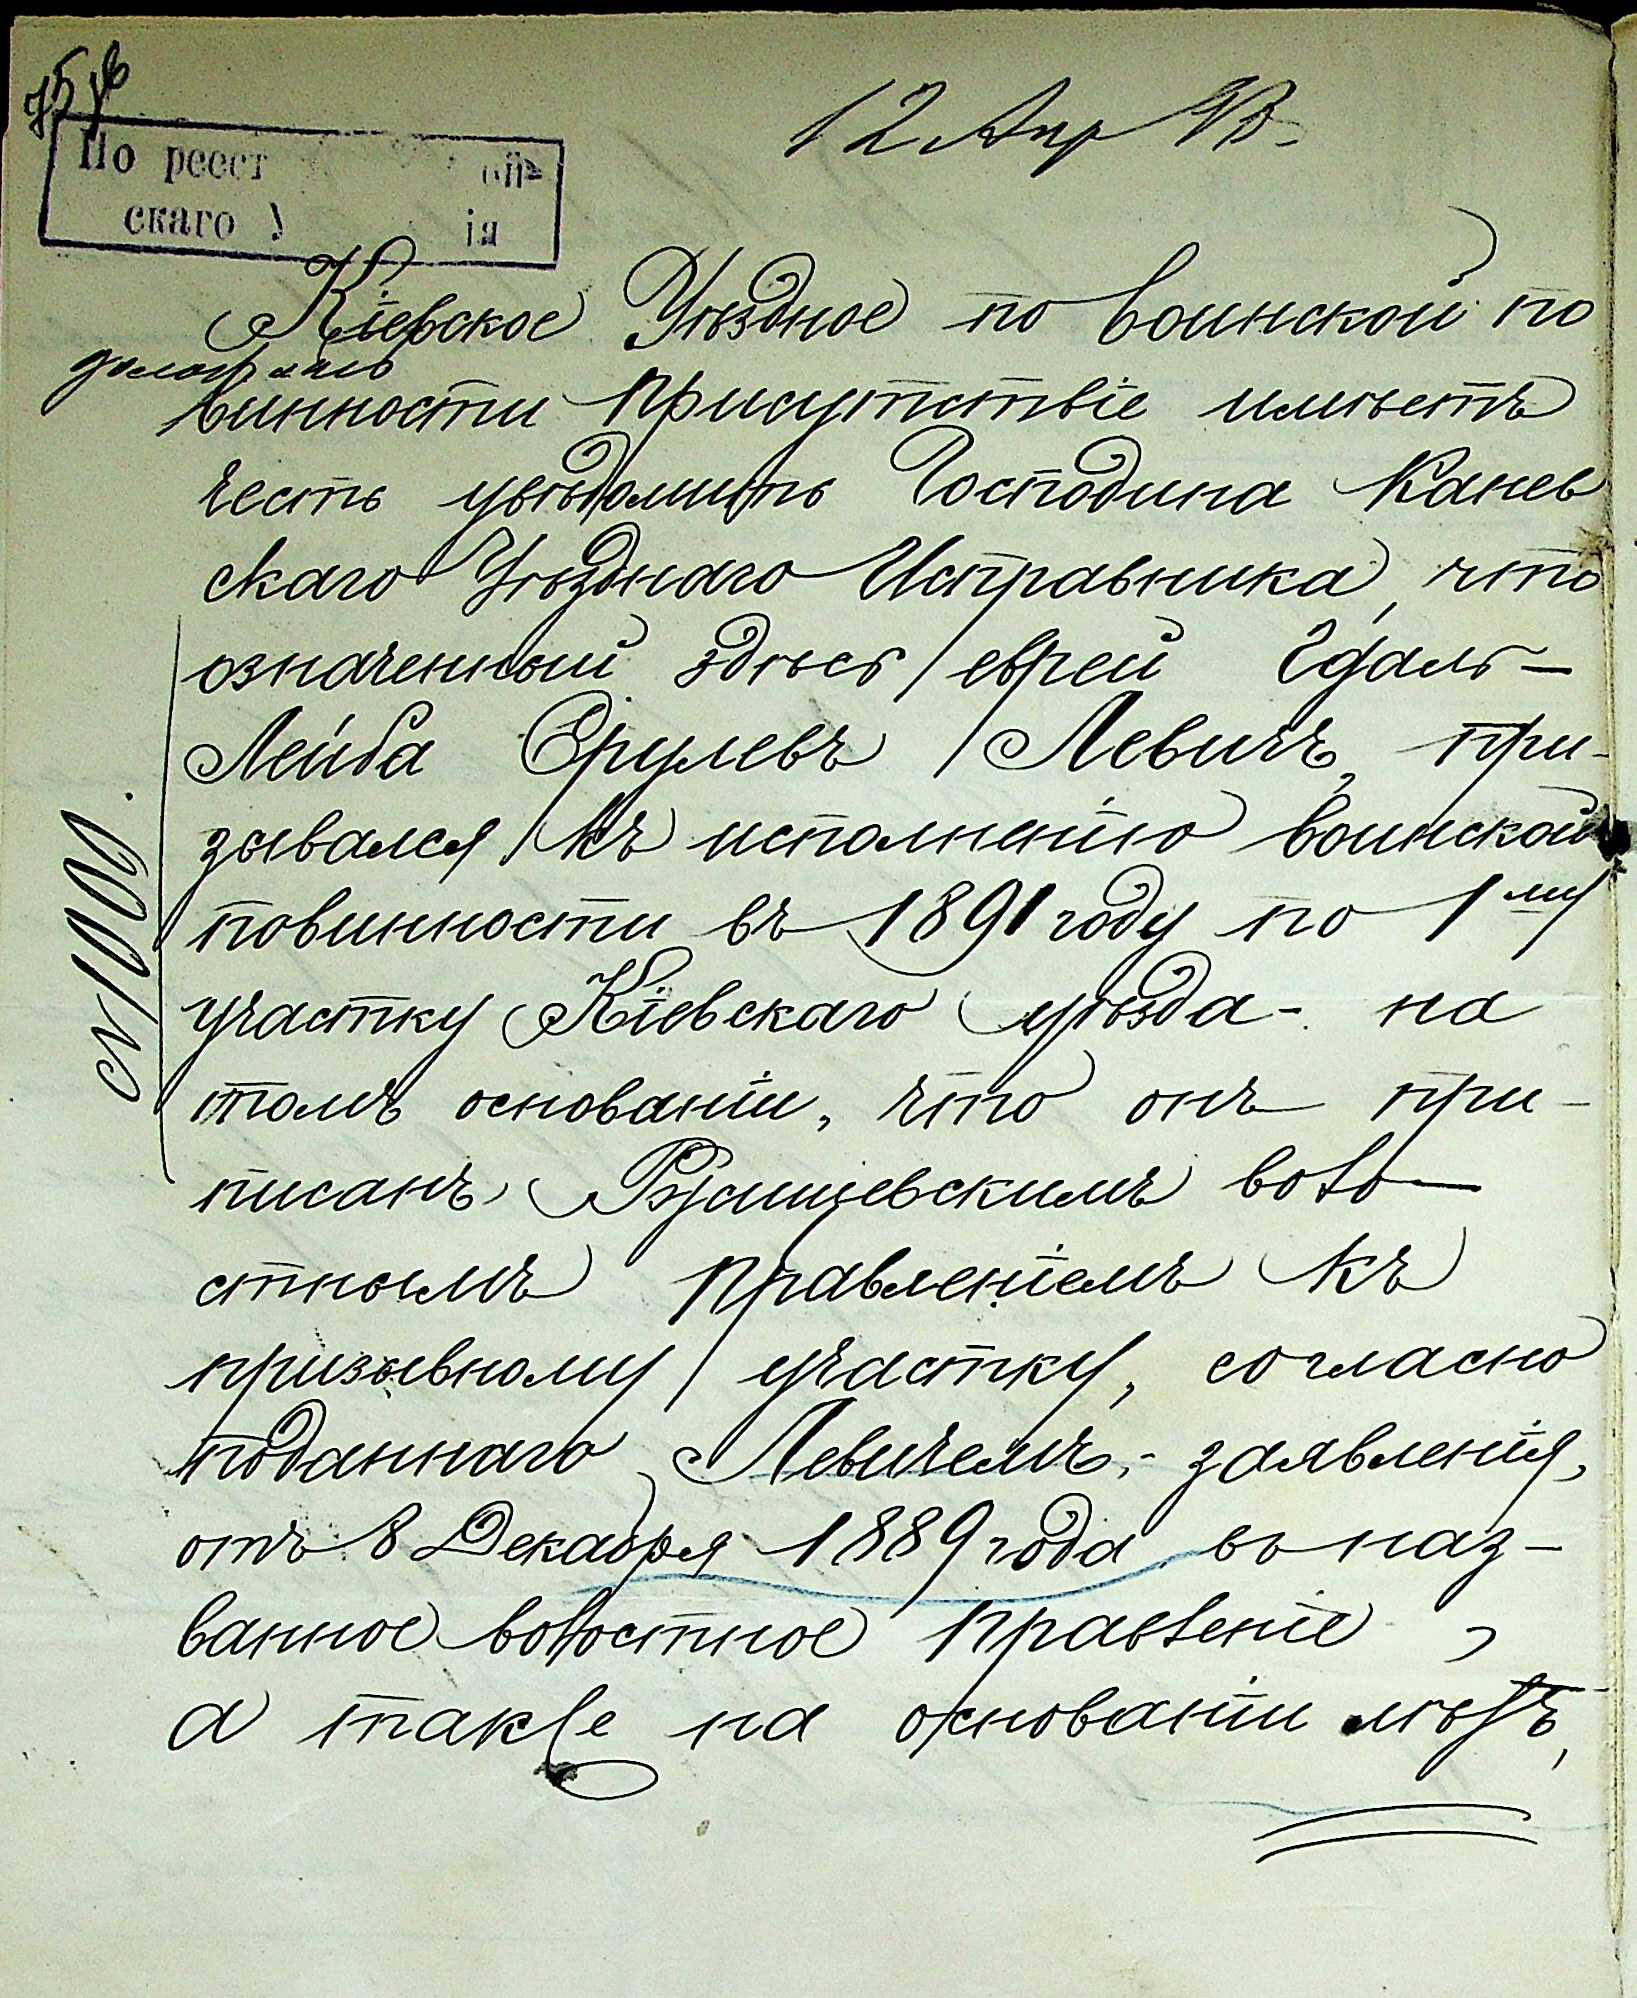 12 Апр 93.
По реест ой
скаго У ія
Кіевское Уѣздное по воинской по
винности присутствіе имѣетъ
честь увѣдомить Господина Канев
скаго Уѣзднаго Исправника, что
означенный здѣсь еврей Гдаль-
Лейба Срулевъ Левичъ, при-
зывался къ исполненію воинской
повинности въ 1891 году по 1му
участку Кіевскаго уѣзда - на
томъ основаніи, что онъ при-
писанъ Ржищевскимъ воло-
стнымъ правленіемъ къ
призывному участку, согласно
поданнаго Левичемъ, - заявленія,
отъ 8 Декабря 1889 года въ наз-
ванное волостное правленіе,
а также на основаніи
№ 1000.